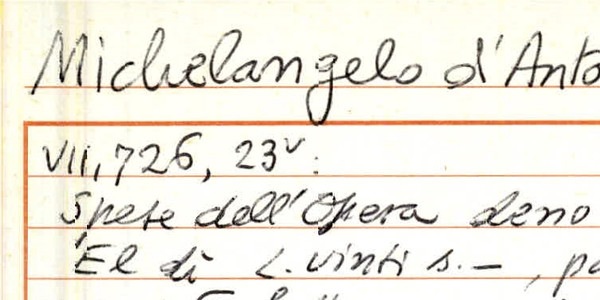 Michelangelo d'Anto
VII, 726, 23v:
Spese dell'Opera deno
El dì L. vinti s.—, pa